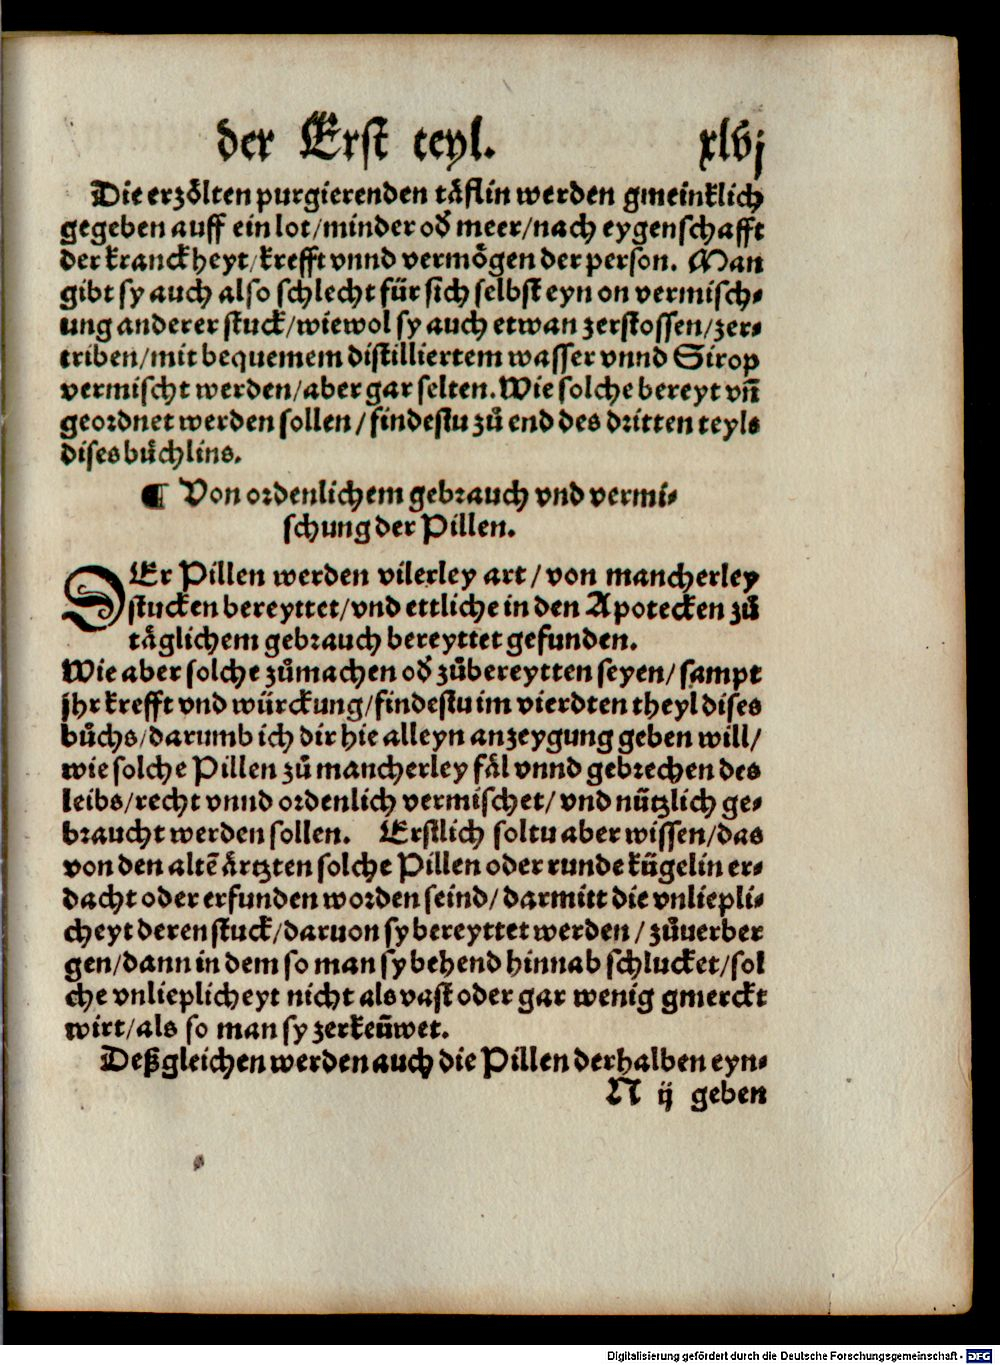 der Erst teyl. xlvj
Die erzoͤlten purgierenden taͤflin werden gmeinklich
gegeben auff ein lot/minder od̕ meer/nach eygenschafft
der kranckheyt/krefft vnnd vermoͤgen der person. Man
gibt sy auch also schlecht für sich selbst eyn on vermisch-
ung anderer stuck/wiewol sy auch etwan zerstossen/zer-
triben/mit bequemem distilliertem wasser vnnd Sirop
vermischt werden/aber gar selten. Wie solche bereyt vn̄
geordnet werden sollen/findestu zuͦ end des dritten teyls
dises buͤchlins.
¶ Von ordenlichem gebrauch vnd vermi-
schung der Pillen.
DEr Pillen werden vilerley art/von mancherley
stucken bereyttet/vnd ettliche in den Apotecken zuͦ
taͤglichem gebrauch bereyttet gefunden.
Wie aber solche zuͦmachen od̕ zuͦbereytten seyen/sampt
jhr krefft vnd würckung/findestu im vierdten theyl dises
buͦchs/darumb ich dir hie alleyn anzeygung geben will/
wie solche Pillen zuͦ mancherley faͤl vnnd gebrechen des
leibs/recht vnnd ordenlich vermischet/vnd nützlich ge-
braucht werden sollen. Erstlich soltu aber wissen/das
von den altē aͤrtzten solche Pillen oder runde kügelin er-
dacht oder erfunden worden seind/darmitt die vnliepli-
cheyt deren stuck/daruon sy bereyttet werden/zuͦuerber
gen/dann in dem so man sy behend hinnab schlucket/sol
che vnlieplicheyt nicht als vast oder gar wenig gmerckt
wirt/als so man sy zerkeüwet.
Deßgleichen werden auch die Pillen derhalben eyn-
N ij geben
Digitalisierung gefördert durch die Deutsche Forschungsgemeinschaft - DFG